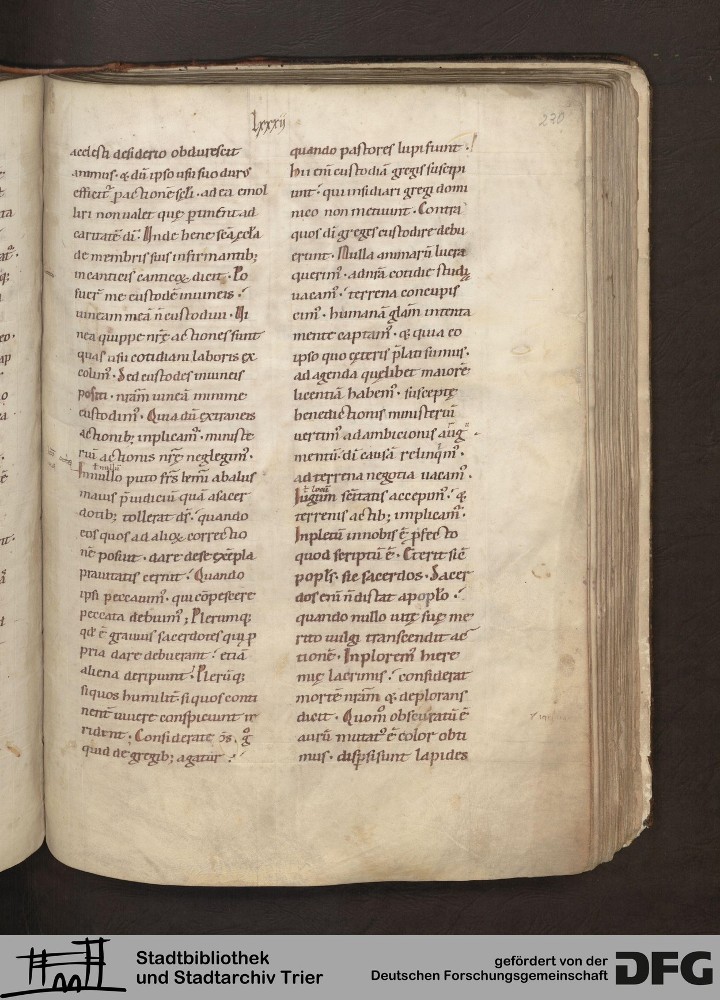 Lxxxii
230
cęlesti desiderio obdurescit
animus. & dū ipso usu suo durꝰ
efficit᷑ p actionē sc̄li. ad ea emol
liri non ualet quę ꝑtinent ad
caritatē dī. Unde bene sc̄a ęccl̄a
de membris suis infirmantib;
in canticis canticoꝝ dicit. Po
suer̄ me custodē in uineis.
uineam meā n̄ custodiui. Ui
nea quippe nr̄ę actiones sunt
quas usu cotidiani laboris ex
colimꝰ. Sed custodes in uineis
positi. nr̄am uineā minime
custodimꝰ. Quia dū extraneis
actionib; inplicam᷑. ministe
riū actionis nr̄ę neglegimꝰ.
ł nullū
In nullo puto fr̄s kr̄mi ab aliis
maius p̄iudiciū quā a sacer
dotib; tollerat ds̄. quando
eos quos ad alioꝝ correctio
nē posuit. dare de se exēpla
prauitatis cernit. Quando
ipsi peccamꝰ. qui cōpescere
peccata debuimꝰ; Plerumq;
qđ ē grauius sacerdotes qui ꝓ
pria dare debuerant. etiā
aliena deripiunt. Plerūq;
si quos humilit᷑. si quos conti
nent᷑ uiuere conspiciunt ir
rident. Considerate
quid de gregib; agatur.
quando pastores lupi fiunt.
hii eni custodiā gregis suscipi
unt. qui insidiari gregi domi
nico non metuunt. Contra
quos dī greges custodire debu
erant. Nulla animarū lucra
querimꝰ. ad nr̄a cotidie studia
uacamꝰ. terrena concupis
cimꝰ. humanā glām intenta
mente captamꝰ. & quia eo
ipso quo cęteris p̄lati sumus.
ad agenda quęlibet maiorē
licentiā habemꝰ. susceptę
benedictionis ministeriū
uertimꝰ ad ambicionis aug
mentū. dī causā relinqmꝰ.
ad terrena negotia uacamꝰ.
ł locū
Iugum sc̄itatis accepimꝰ. &
terrenis actib; implicam᷑.
Inpletū in nobis ē p̄fecto
quod scriptū ē. Et erit sic̄
popl̄s. sic sacerdos. Sacer
dos eni n̄ distat a poplo.
quando nullo uitę suę me
rito uulgi transcendit ac
tionē. Inploremꝰ hiere
mię lacrimis. considerat
mortē nr̄am. & deplorans
dicit. Quomo obscuratū ē
aurū mutatꝰ ē color obti
mus. disp̄si sunt lapides
Stadtbibliothek
und Stadtarchiv Trier
gefördert von der
Deutschen Forschungsgemeinschaft
DFG